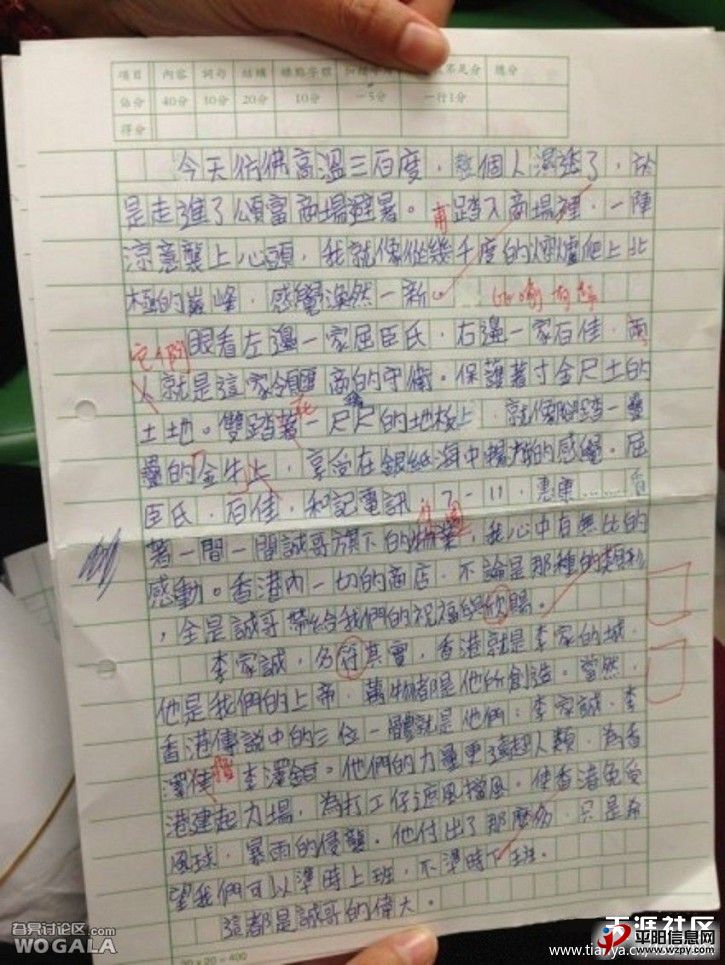 項目 內容 詞句 結構 標點字體 不足分 總分
佔分 40分 30分 20分 10分 -5分 一行1分
得分
今天仿佛高溫三百度，整個人濕透了，於
是走進了頌富商場避暑。甫踏入商場裡，一陣
涼意襲上心頭，我就像從幾千度的火爐爬上北
極的巔峰，感覺渙然一新。
比喻
眼看左邊一家屈臣氏，右邊一家百佳，兩
它們
人就是這家領匯商的守衛。保護著寸金尺土的
土地。雙踏著一尺尺的地板上，就像腳踏一疊
疊的金牛上，享受在銀紙海中 的感覺。屈
臣氏，百佳，和記電訊，7-11，惠康……看
著一間一間誠哥旗下的物業，我心中有無比的
感動。香港內一切的商店，不論是那種的類別
，全是誠哥帶給我們的祝福與欣賜。
李家誠，名符其實，香港就是李家的城。
他是我們的上帝，萬物都是他所創造。當然，
香港傳說中的三位一體就是他們：李家誠，李
澤楷 李澤鉅。他們的力量更遠超人類，為香
港建起力場，為打工仔遮風擋風，使香港免受
風球，暴雨的侵襲。他付出了那麼多，只是希
望我們可以準時上班，不準時下班。
這都是誠哥的偉大。
20×20=400
春易讨论区.com
WOGALA
天涯社区
www.tianya.cn
平阳信息网
www.wzpy.com